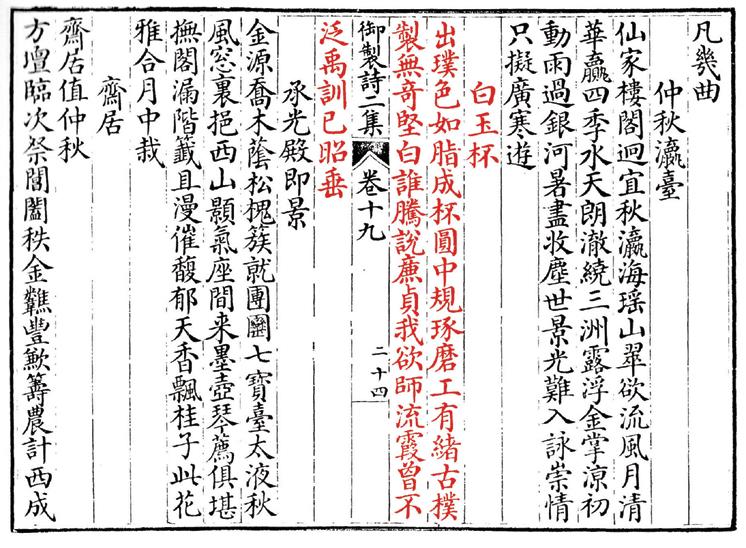 凡幾曲
仲秋瀛臺
仙家樓閣迥宜秋瀛海瑶山翠欲流風月清
華贏四季水天朗澈繞三洲露浮金掌涼初
動雨過銀河暑盡收塵世景光難入詠崇情
只擬廣寒遊
白玉杯
出璞色如脂成杯圓中規琢磨工有緒古樸
製無奇堅白誰騰說亷貞我欲師流霞曾不
御製詩二集
卷十九
二十四
泛禹訓已昭垂
承光殿即景
金源喬木蔭松槐簇就團圞七寶臺太液秋
風窓裏挹西山顥氣座間来墨壺琴薦俱堪
撫閣漏階籤且漫催馥郁天香飄桂子此花
雅合月中栽
齋居
齋居值仲秋
方壇臨次祭閶闔秩金䕶豐歉籌農計西成